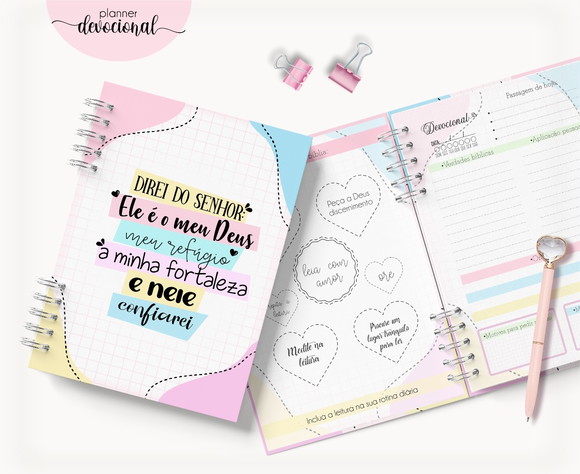 planner
devocional
DIREI DO SENHOR:
Ele é o meu Deus
meu refúgio
a minha fortaleza
e nele
confiarei
Peça a Deus
discernimento
leia com
amor
ore
Medite na
leitura
Procure um
lugar tranquilo
para ler
Inclua a leitura na sua rotina diária
Devocional
DATA:
Passagem de hoje
Aplicação
Verdades bíblicas